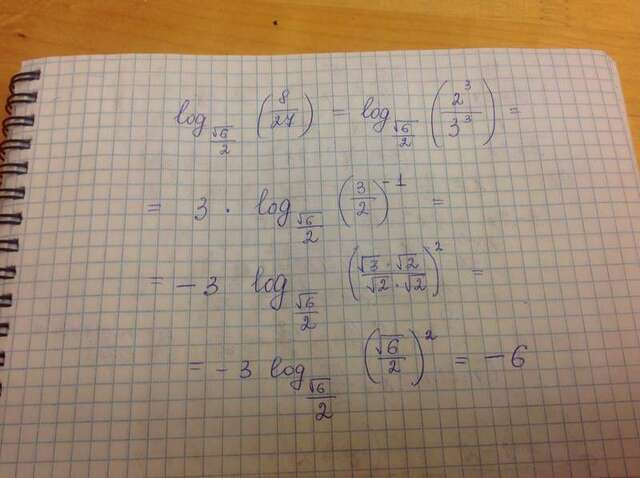 log_{√6/2} (8/27) = log_{√6/2} (2^3/3^3) =
= 3 · log_{√6/2} (3/2)^{-1} =
= -3 log_{√6/2} (√3·√2/√2·√2)^2 =
= -3 log_{√6/2} (√6/2)^2 = -6